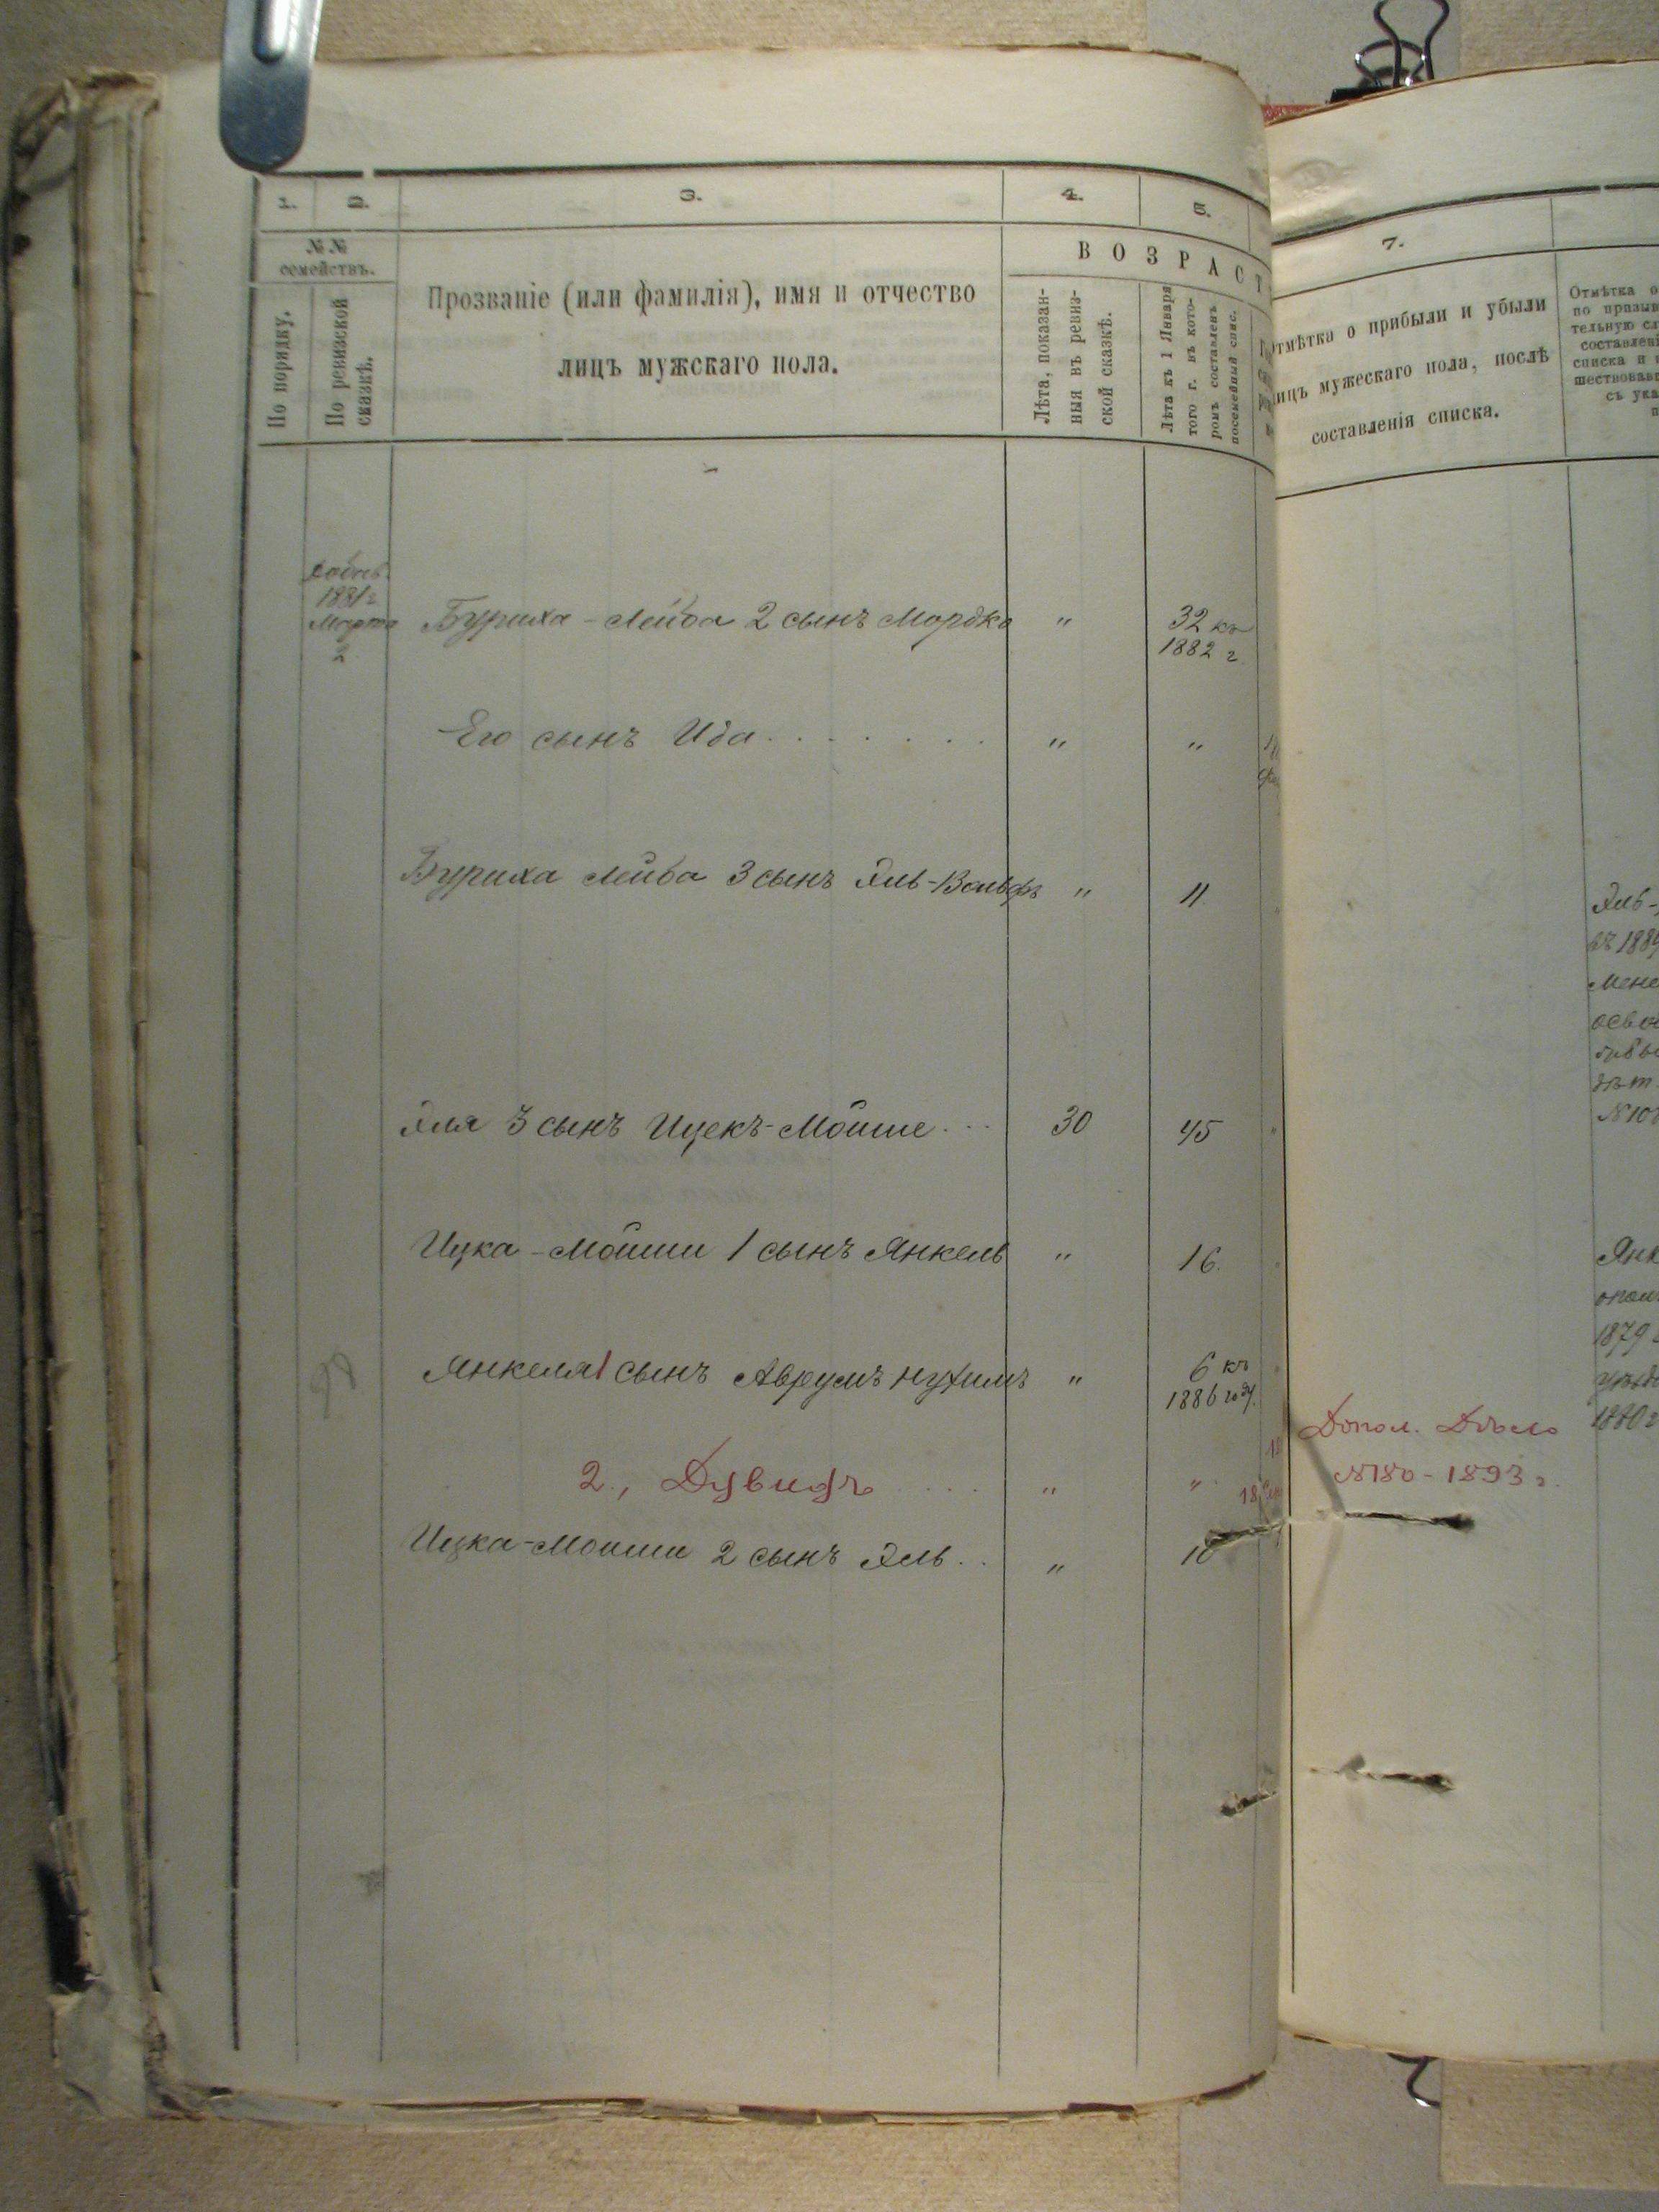 1. 2. 3. 4. 5.
№№ семействъ.
По порядку.
По ревизской сказкѣ.
Прозваніе (или фамилія), имя и отчество
лицъ мужскаго пола.
ВОЗРАСТ
Лѣта, показан-
ныя въ ревиз-
ской сказкѣ.
Лѣта къ 1 Января
того г. въ кото-
ромъ составленъ
посемейный спис.
1881 г
Марта
2
Буриха-Лейба 2 сынъ Мордко " 32 къ
1882 г.
Его сынъ Ида . . . . . . . . " "
Буриха Лейба 3 сынъ Эль-Вольфъ " 11
Эля 3 сынъ Ицекъ-Мойше . . . 30 45
Ицка-Мойши 1 сынъ Янкель " 16.
Янкеля 1 сынъ Аврумъ Нухимъ " 6 къ
1886 году.
2., Дувидъ . . . . " "
Ицка-Мошки 2 сынъ Эль . . " 10
7.
Отмѣтка о прибыли и убыли
лицъ мужескаго пола, послѣ
составленія списка.
Допол. Дѣло
№180 - 1893 г.
Отмѣтка о
по призыв
тельную сл
составлені
списка и п
шествовавш
съ ука
п
Эль-
въ 1889
мене
осво
№10
Янк
опол
1879
1880 г